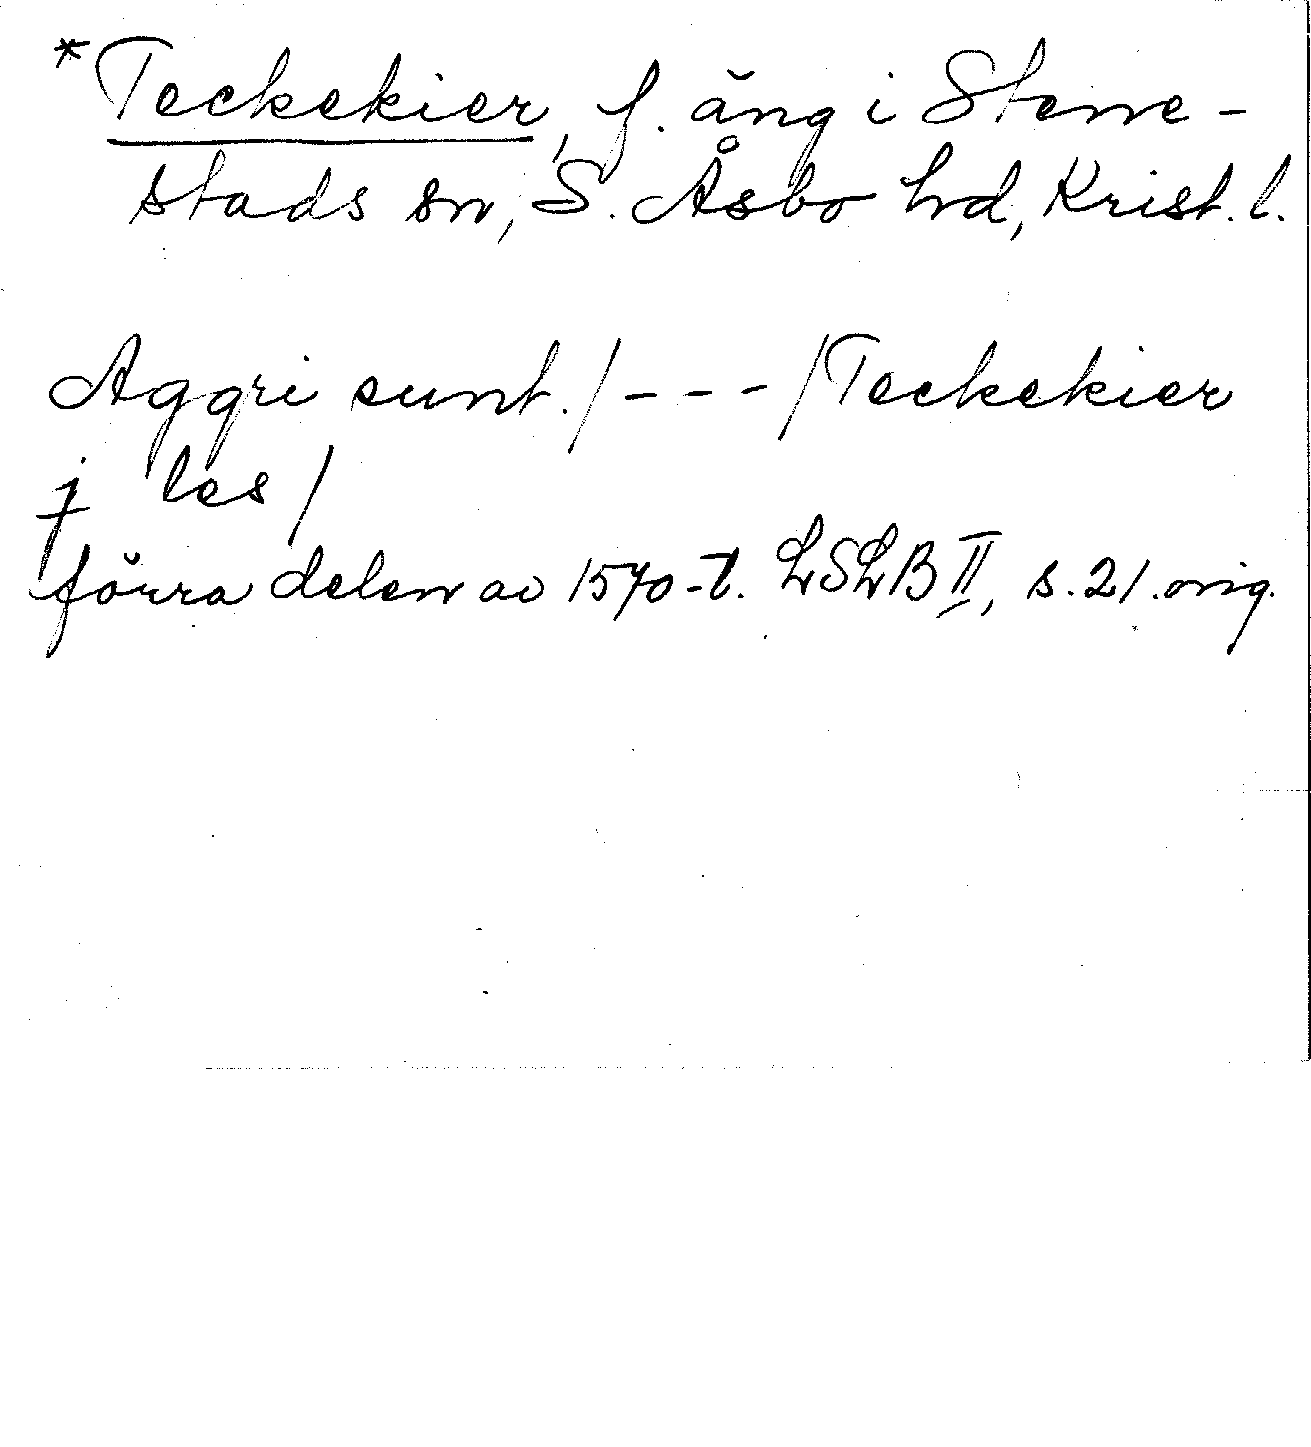 *Teckekier, f. äng i Stene-
stads sn, S. Åsbo hd, Krist. l.
Aggri sunt. / - - - / Teckekier
j les /
förra delen av 1570-t. LSLB II, s. 21. orig.